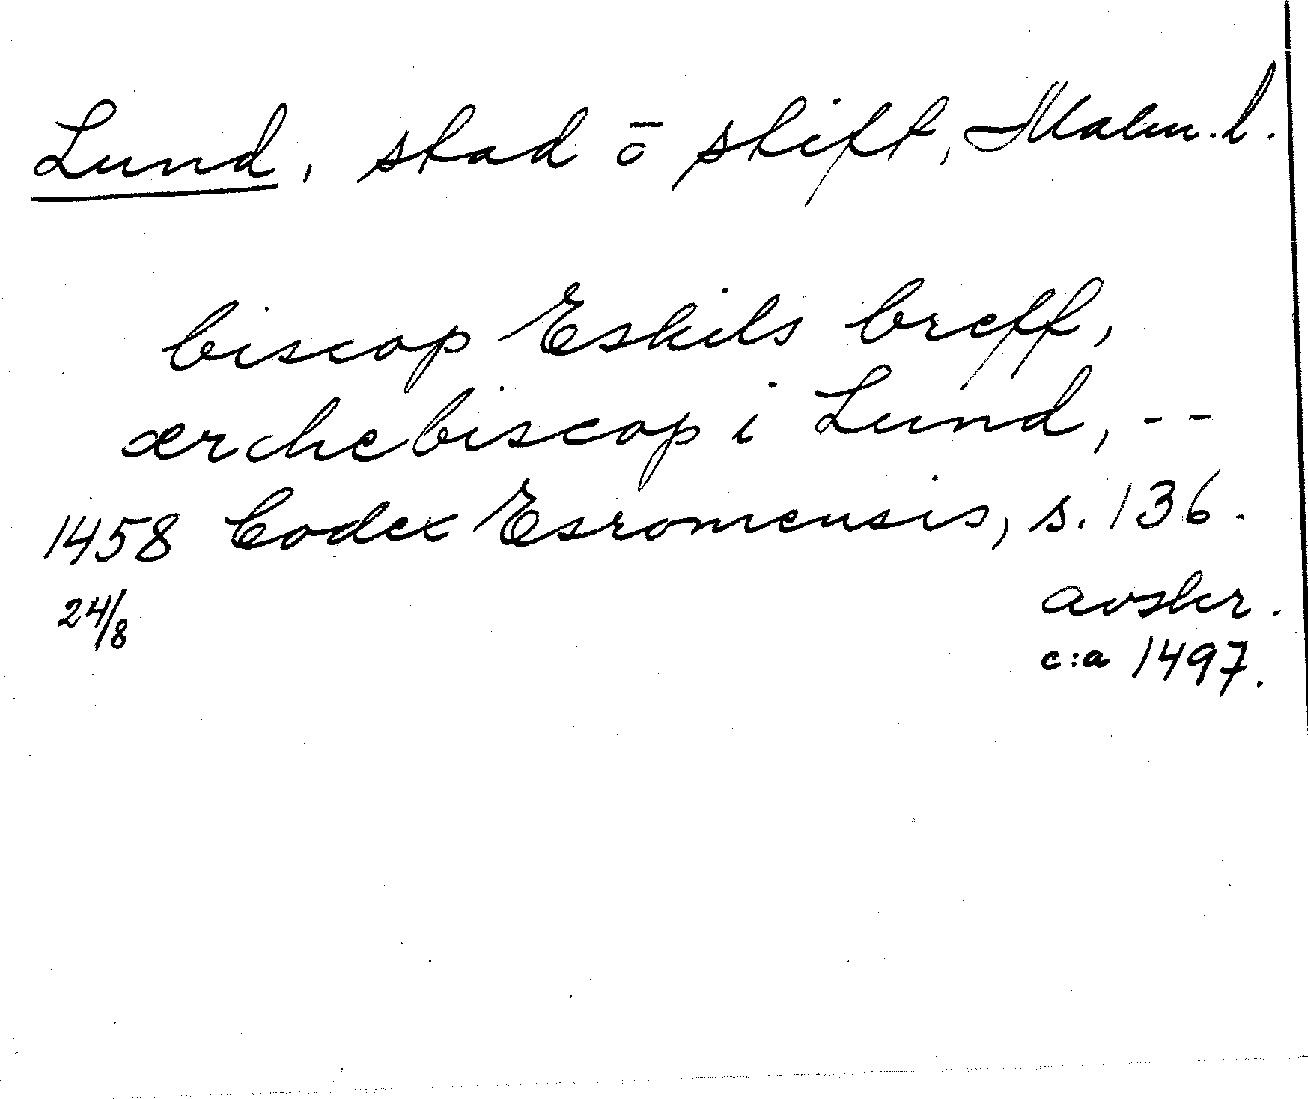 Lund, stad ō stift, Malm.l.
biscop Eskils breff,
ærchebiscop i Lund, --
1458 Codex Esromensis, s. 136.
24/8 avskr.
c:a 1497.